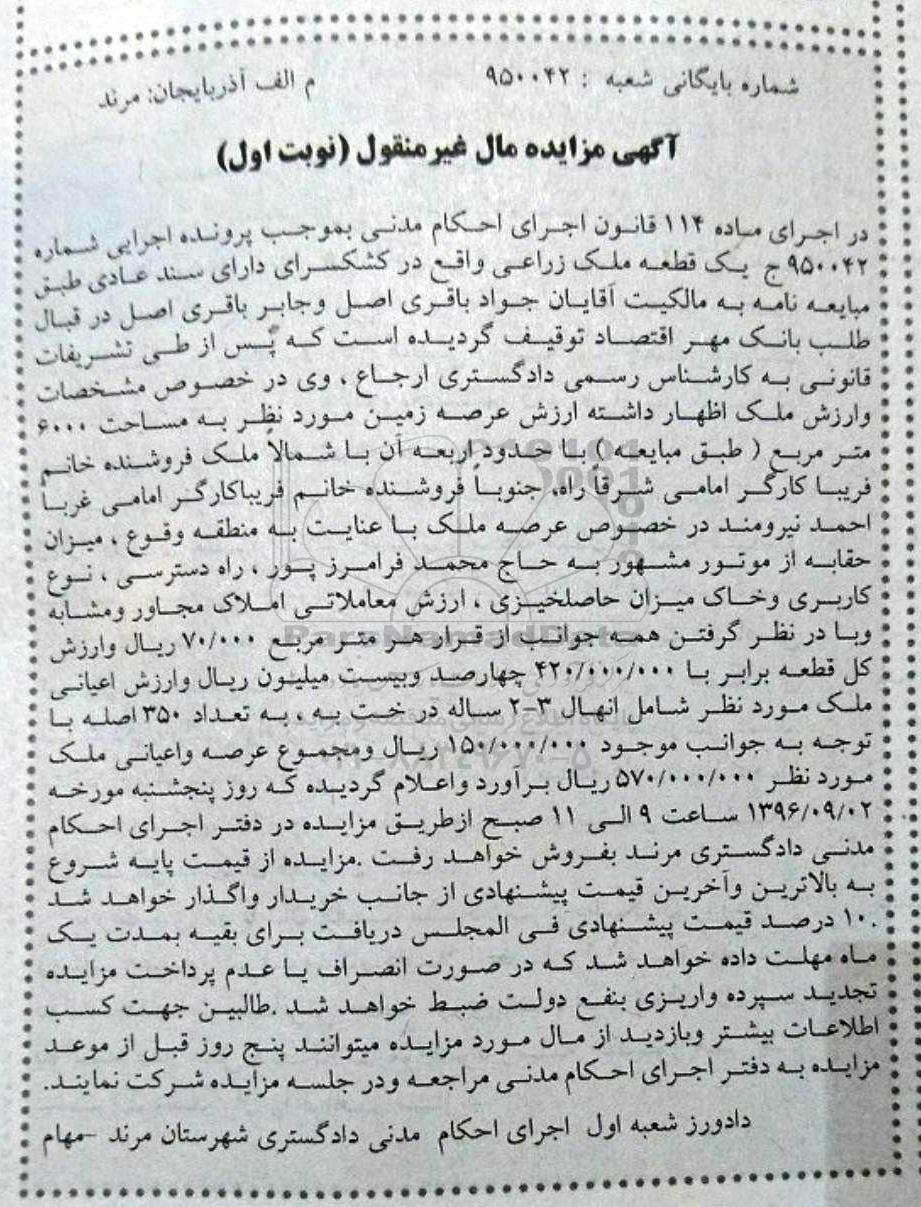 شماره بایگانی شعبه : ۹۵۰۰۴۲
م الف آذربایجان: مرند
آگهی مزایده مال غیرمنقول (نوبت اول)
در اجرای ماده ۱۱۴ قانون اجرای احکام مدنی بموجب پرونده اجرایی شماره
۹۵۰۰۴۲ج یک قطعه ملک زراعی واقع در کشکسرای دارای سند عادی طبق
مبایعه نامه به مالکیت آقایان جواد باقری اصل وجابر باقری اصل در قبال
طلب بانک مهر اقتصاد توقیف گردیده است که پس از طی تشریفات
قانونی به کارشناس رسمی دادگستری ارجاع ، وی در خصوص مشخصات
وارزش ملک اظهار داشته ارزش عرصه زمین مورد نظر به مساحت ۶۰۰۰
متر مربع ( طبق مبایعه ) با حدود اربعه آن با شمالاً ملک فروشنده خانم
فریبا کارگر امامی شرقاً راه، جنوباً فروشنده خانم فریباکارگر امامی غربا
احمد نیرومند در خصوص عرصه ملک با عنایت به منطقه وقوع ، میزان
حقابه از موتور مشهور به حاج محمد فرامرز پور ، راه دسترسی ، نوع
کاربری وخاک میزان حاصلخیزی ، ارزش معاملاتی املاک مجاور ومشابه
وبا در نظر گرفتن همه جوانب از قرار هر متر مربع ۷۰/۰۰۰ ریال وارزش
کل قطعه برابر با ۴۲۰/۰۰۰/۰۰۰ چهارصد وبیست میلیون ریال وارزش اعیانی
ملک مورد نظر شامل انهال ۳-۲ ساله درخت به ، به تعداد ۳۵۰ اصله با
توجه به جوانب موجود ۱۵۰/۰۰۰/۰۰۰ ریال ومجموع عرصه واعیانی ملک
مورد نظر ۵۷۰/۰۰۰/۰۰۰ ریال برآورد واعلام گردیده که روز پنجشنبه مورخه
۱۳۹۶/۰۹/۰۲ ساعت ۹ الی ۱۱ صبح ازطریق مزایده در دفتر اجرای احکام
مدنی دادگستری مرند بفروش خواهد رفت .مزایده از قیمت پایه شروع
به بالاترین وآخرین قیمت پیشنهادی از جانب خریدار واگذار خواهد شد
.۱۰ درصد قیمت پیشنهادی فی المجلس دریافت برای بقیه بمدت یک
ماه مهلت داده خواهد شد که در صورت انصراف یا عدم پرداخت مزایده
تجدید سپرده واریزی بنفع دولت ضبط خواهد شد .طالبین جهت کسب
اطلاعات بیشتر وبازدید از مال مورد مزایده میتوانند پنج روز قبل از موعد
مزایده به دفتر اجرای احکام مدنی مراجعه ودر جلسه مزایده شرکت نمایند.
دادورز شعبه اول اجرای احکام مدنی دادگستری شهرستان مرند -مهام